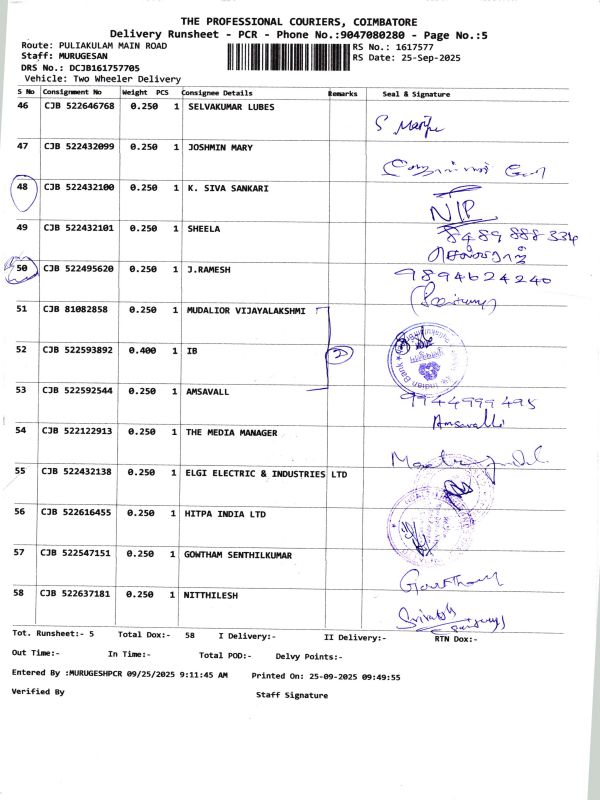 THE PROFESSIONAL COURIERS, COIMBATORE
Delivery Runsheet - PCR - Phone No.:9047080280 - Page No.:5
Route: PULIAKULAM MAIN ROAD RS No.: 1617577
Staff: MURUGESAN RS Date: 25-Sep-2025
DRS No.: DCJB161757705
Vehicle: Two Wheeler Delivery
S No Consignment No Weight PCS Consignee Details Remarks Seal & Signature
46 CJB 522646768 0.250 1 SELVAKUMAR LUBES
47 CJB 522432099 0.250 1 JOSHMIN MARY
48 CJB 522432100 0.250 1 K. SIVA SANKARI
N/P
49 CJB 522432101 0.250 1 SHEELA
8489 888 334
50 CJB 522495620 0.250 1 J.RAMESH
9894624240
51 CJB 81082858 0.250 1 MUDALIOR VIJAYALAKSHMI
52 CJB 522593892 0.400 1 IB
Indian Bank
53 CJB 522592544 0.250 1 AMSAVALL
9944999495
Amsavalli
54 CJB 522122913 0.250 1 THE MEDIA MANAGER
55 CJB 522432138 0.250 1 ELGI ELECTRIC & INDUSTRIES LTD
56 CJB 522616455 0.250 1 HITPA INDIA LTD
57 CJB 522547151 0.250 1 GOWTHAM SENTHILKUMAR
Gowtham
58 CJB 522637181 0.250 1 NITTHILESH
Tot. Runsheet:- 5 Total Dox:- 58 I Delivery:- II Delivery:- RTN Dox:-
Out Time:- In Time:- Total POD:- Delvy Points:-
Entered By :MURUGESHPCR 09/25/2025 9:11:45 AM Printed On: 25-09-2025 09:49:55
Verified By Staff Signature